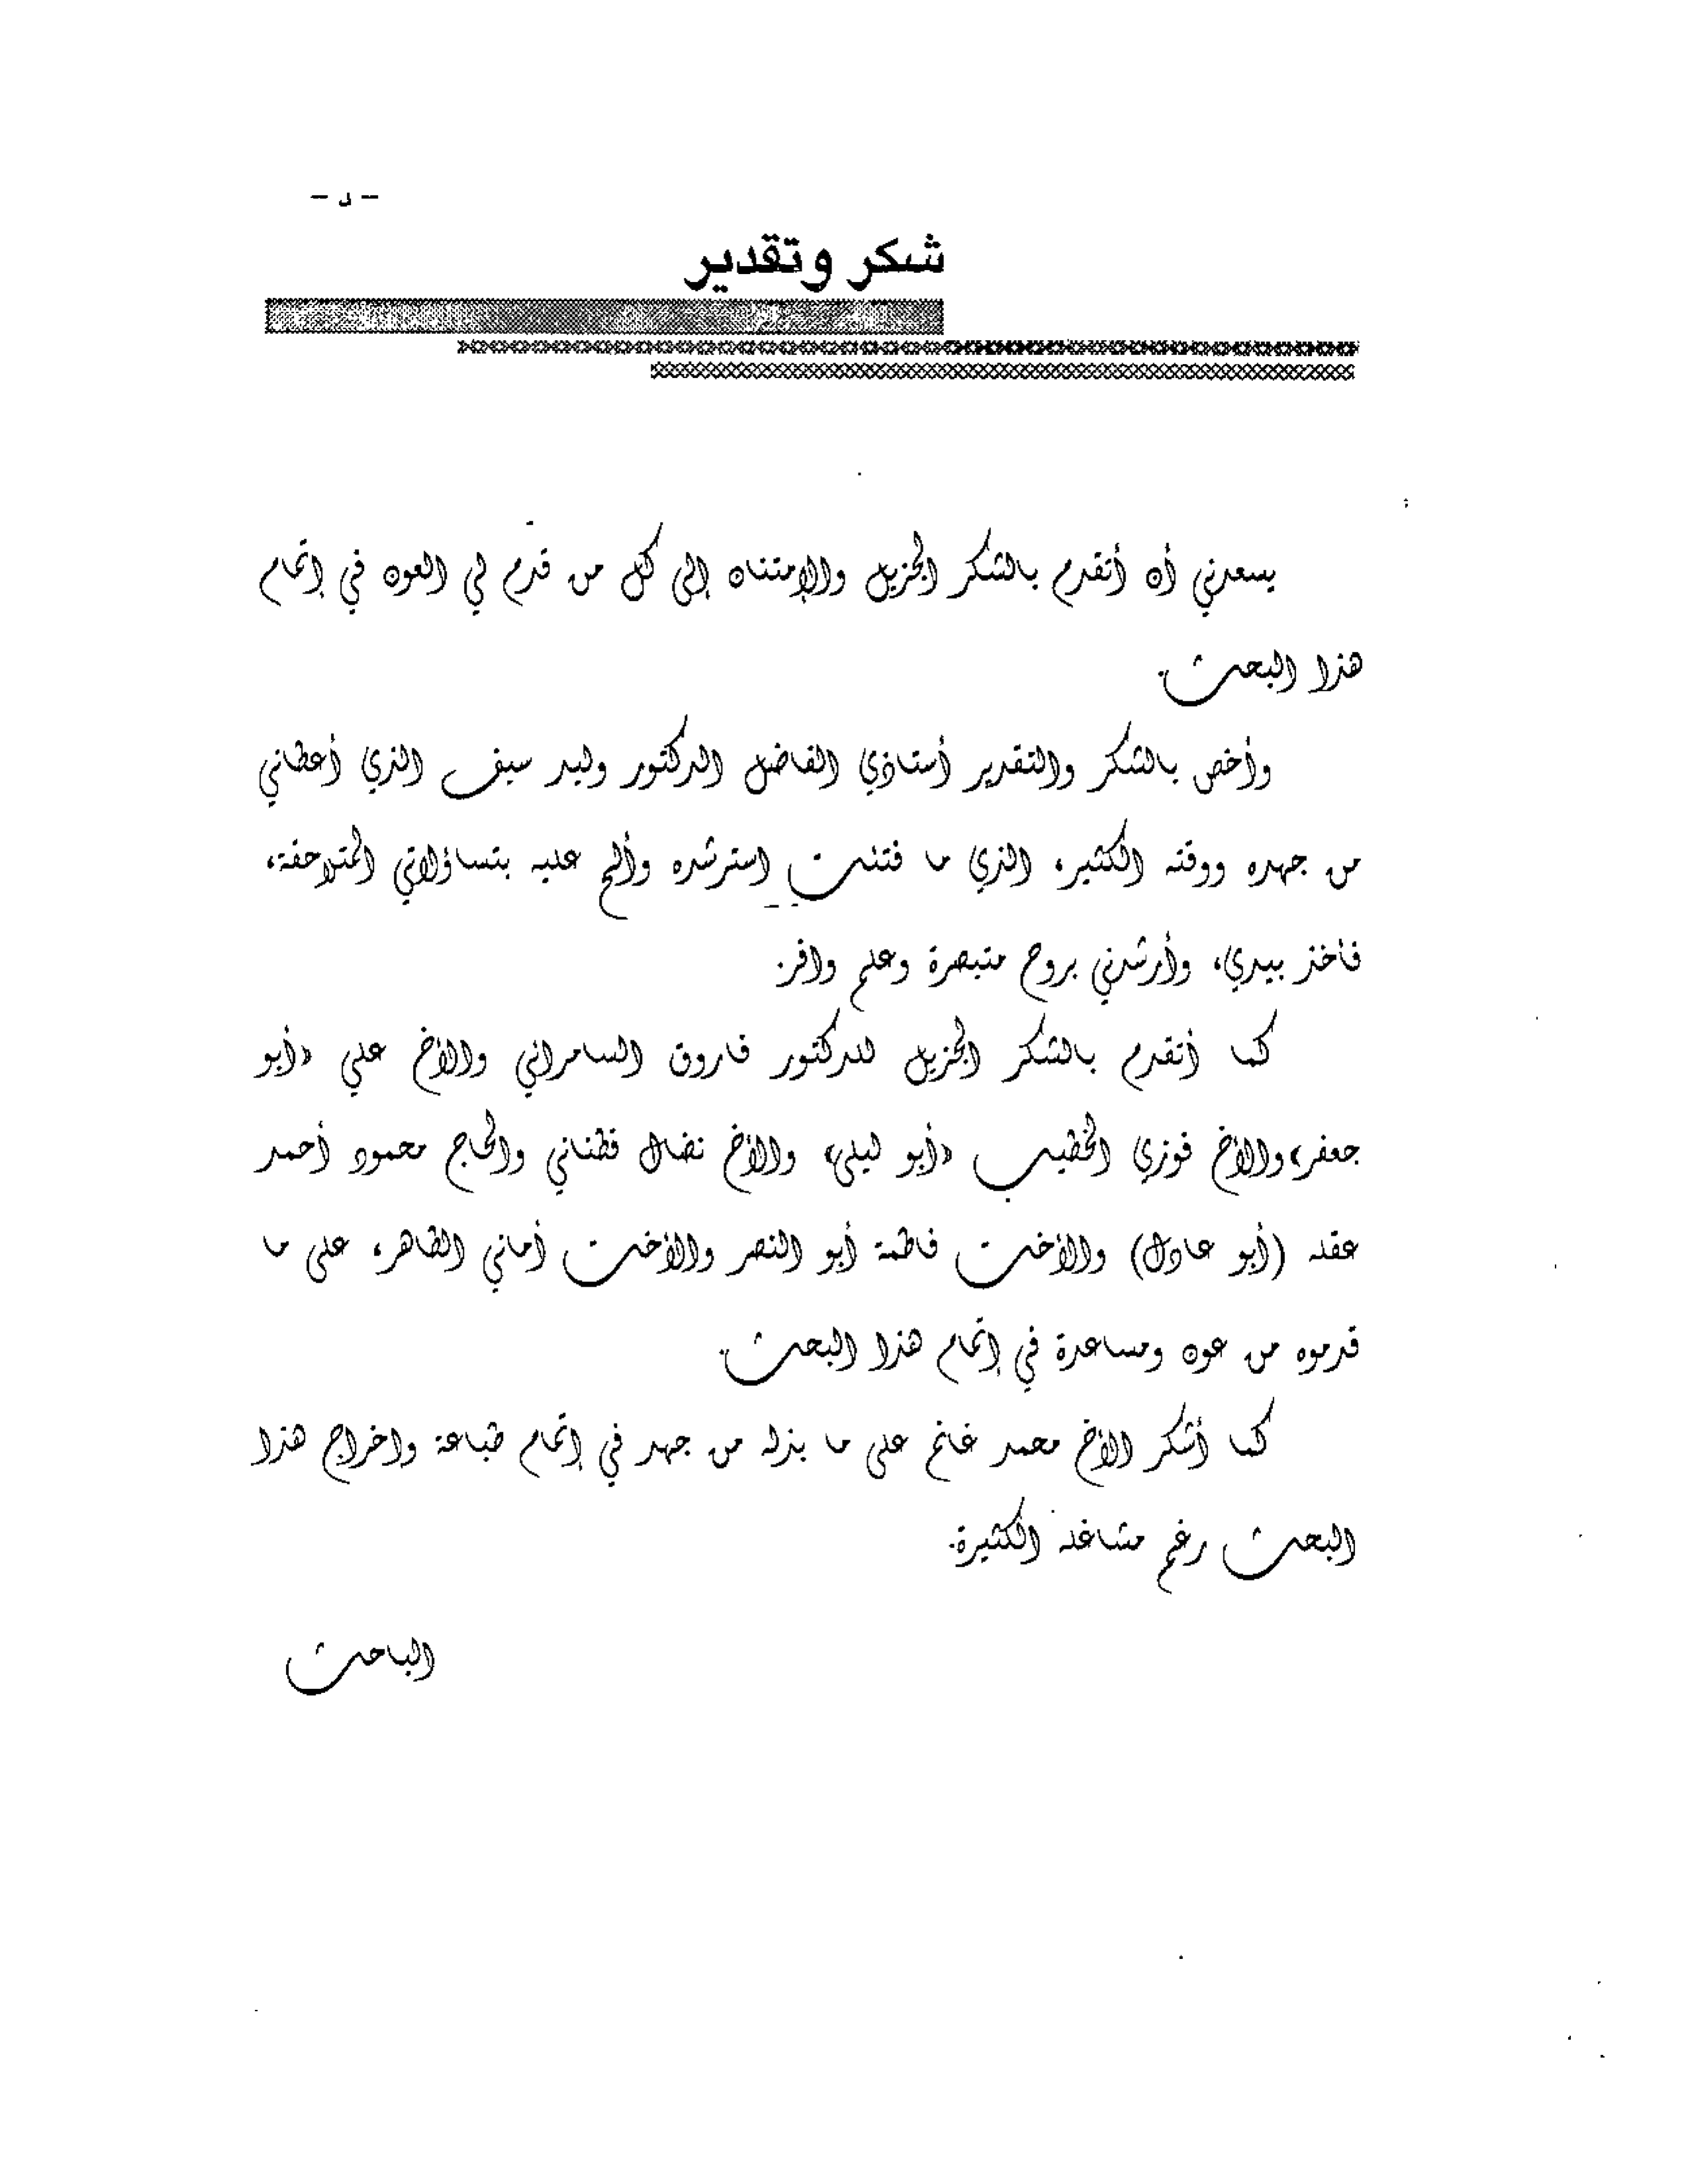 - د -
شكر وتقدير
يسعدني أن أتقدم بالشكر الجزيل والإمتنان إلى كل من قدّم لي العون في إتمام
هذا البحث.
وأخص بالشكر والتقدير أستاذي الفاضل الدكتور وليد سيف الذي أعطاني
من جهده ووقته الكثير، الذي ما فتئت استرشده وألح عليه بتساؤلاتي المتلاحقة،
فأخذ بيدي، وأرشدني بروح متبصرة وعلم وافر.
كما أتقدم بالشكر الجزيل للدكتور فاروق السامرائي والأخ علي «أبو
جعفر» والأخ فوزي الخطيب «أبو ليلى» والأخ نضال قطناني والحاج محمود أحمد
عقله (أبو عادل) والأخت فاطمة أبو النصر والأخت أماني الظاهر، على ما
قدموه من عون ومساعدة في إتمام هذا البحث.
كما أشكر الأخ محمد غانم على ما بذله من جهد في إتمام طباعة واخراج هذا
البحث رغم مشاغله الكثيرة.
الباحث